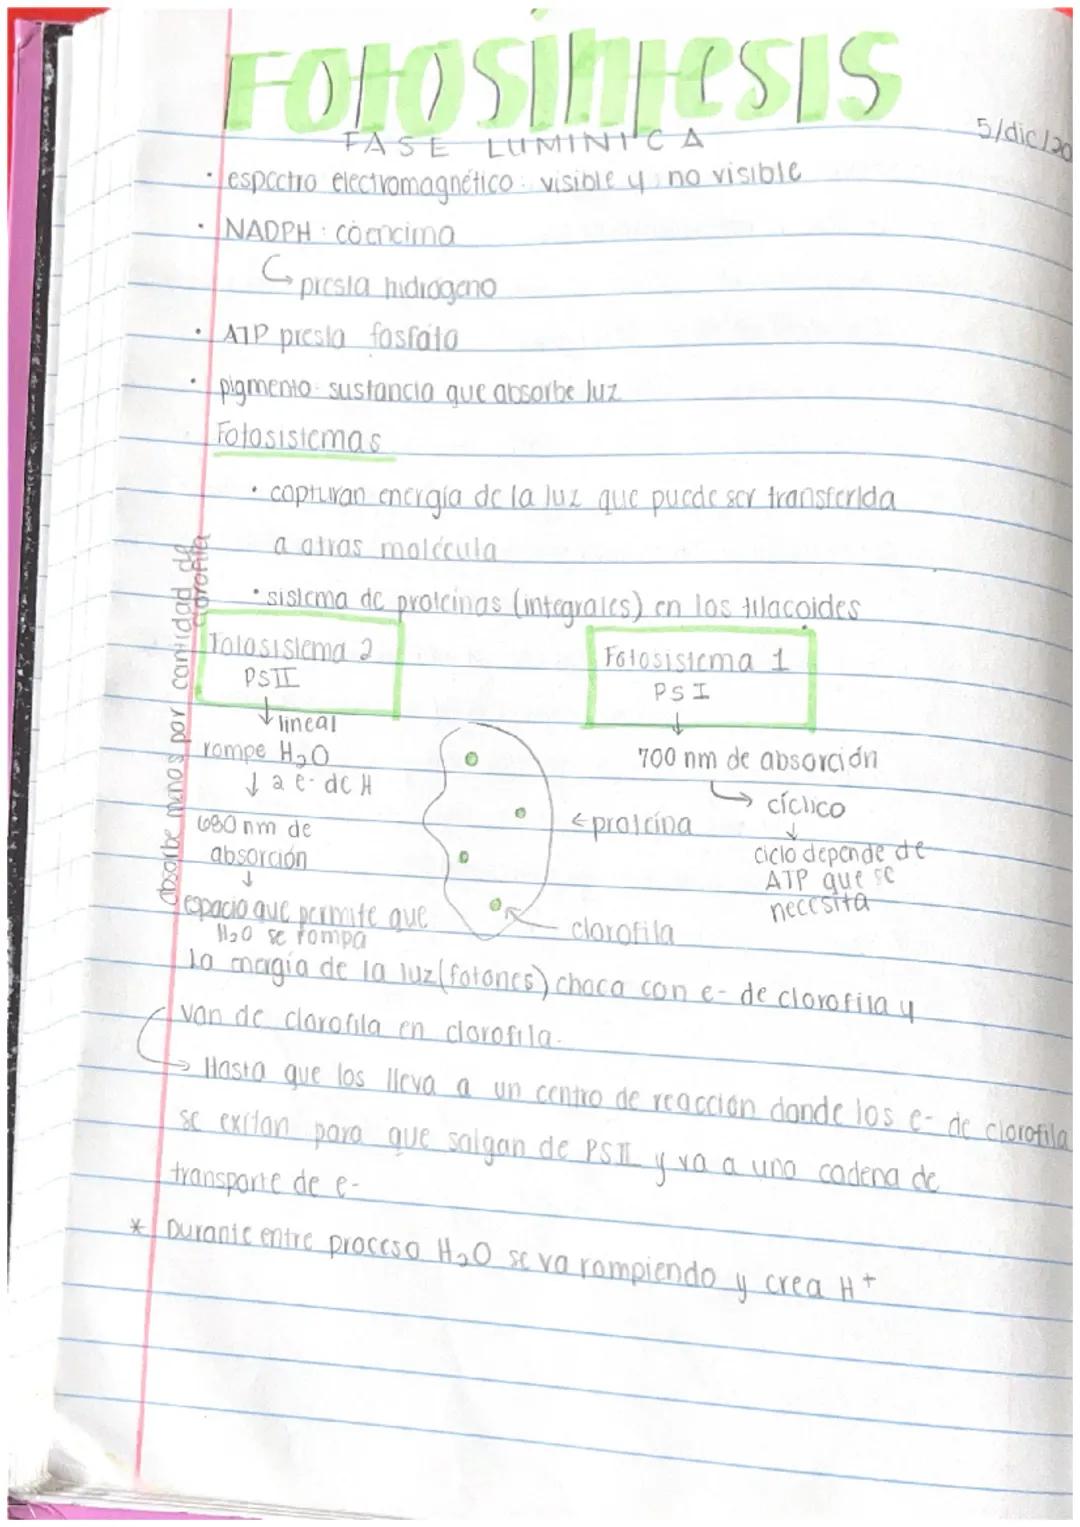 Fotosíntesis
FASE LUMINICA
5/dic/20
· espectro electromagnético: visible y no visible
· NADPH: coencima
presta hidrógeno
· ATP presta fosfato
· pigmento: sustancia que absorbe luz
Fotosistemas
· capturan energía de la luz que puede ser transferida
a otras molécula
· sistema de proteinas (integrales) en los tilacoides
absorbe menos por cantidad de
clorofila
Fotosistema 2
PSII
↓ lineal
rompe H₂O
↓ 2 e- de H
680 nm de
absorción
↓
espacio que permite que
H₂O se rompa
Fotosistema 1
PS I
↓
700 nm de absorción
→ cíclico
↓
ciclo depende de
ATP que se
necesita
← proteína
clorofila
La energía de la luz (fotones) choca con e- de clorofila y
van de clorofila en clorofila.
→ Hasta que los lleva a un centro de reacción donde los e- de clorofila
se exitan para que salgan de PSII y va a una cadena de
transporte de e-
* Durante entre proceso H₂O se va rompiendo y crea H+